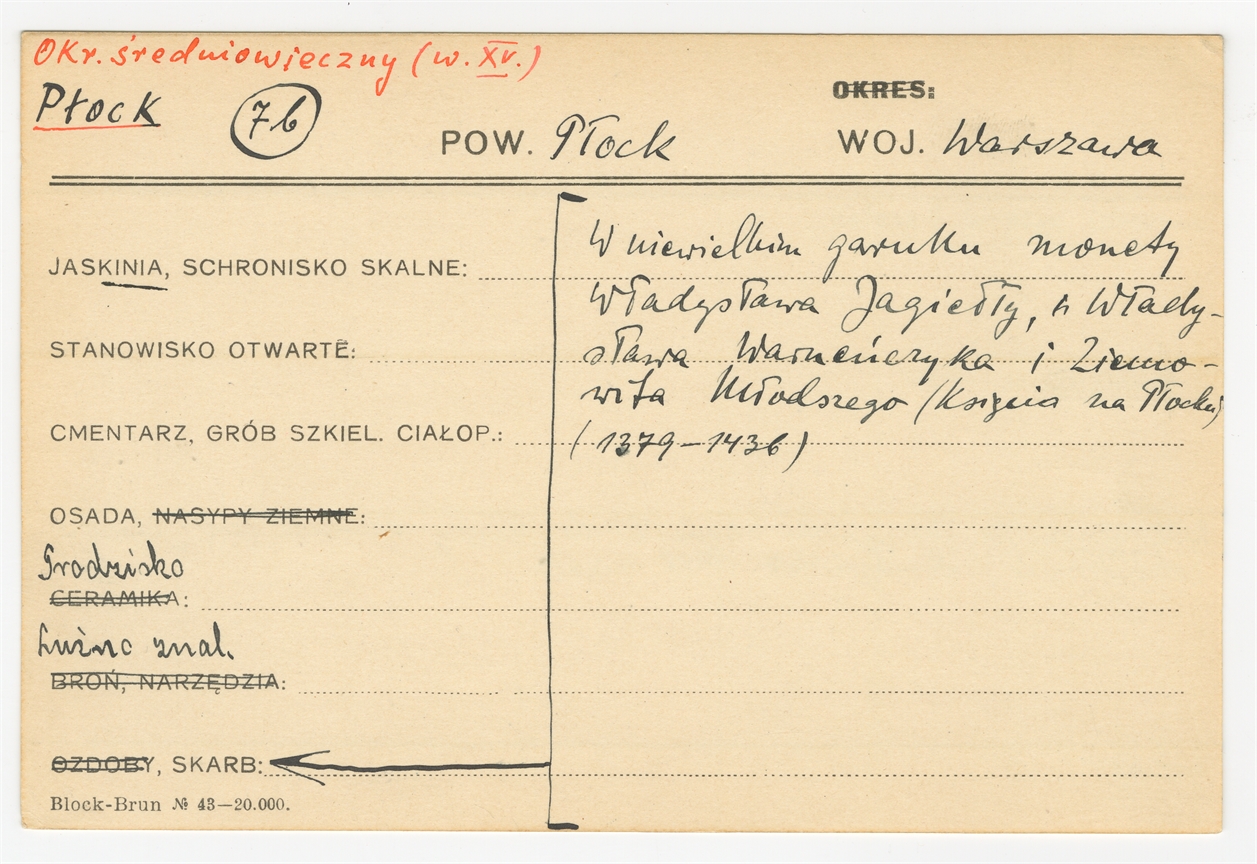 Okr. średniowieczny (w. XV.)
Płock
7b
OKRES:
POW. Płock
WOJ. Warszawa
JASKINIA, SCHRONISKO SKALNE:
STANOWISKO OTWARTE:
CMENTARZ, GRÓB SZKIEL. CIAŁOP.:
OSADA, NASYPY ZIEMNE:
Grodzisko
CERAMIKA:
Luźne znal.
BROŃ, NARZĘDZIA:
OZDOBY, SKARB:
Block-Brun № 43—20.000.
W niewielkim garnku monety
Władysława Jagiełły, Włady-
sława Warneńczyka i Ziemo-
wita Młodszego (Księcia na Płocku)
(1379–1436)